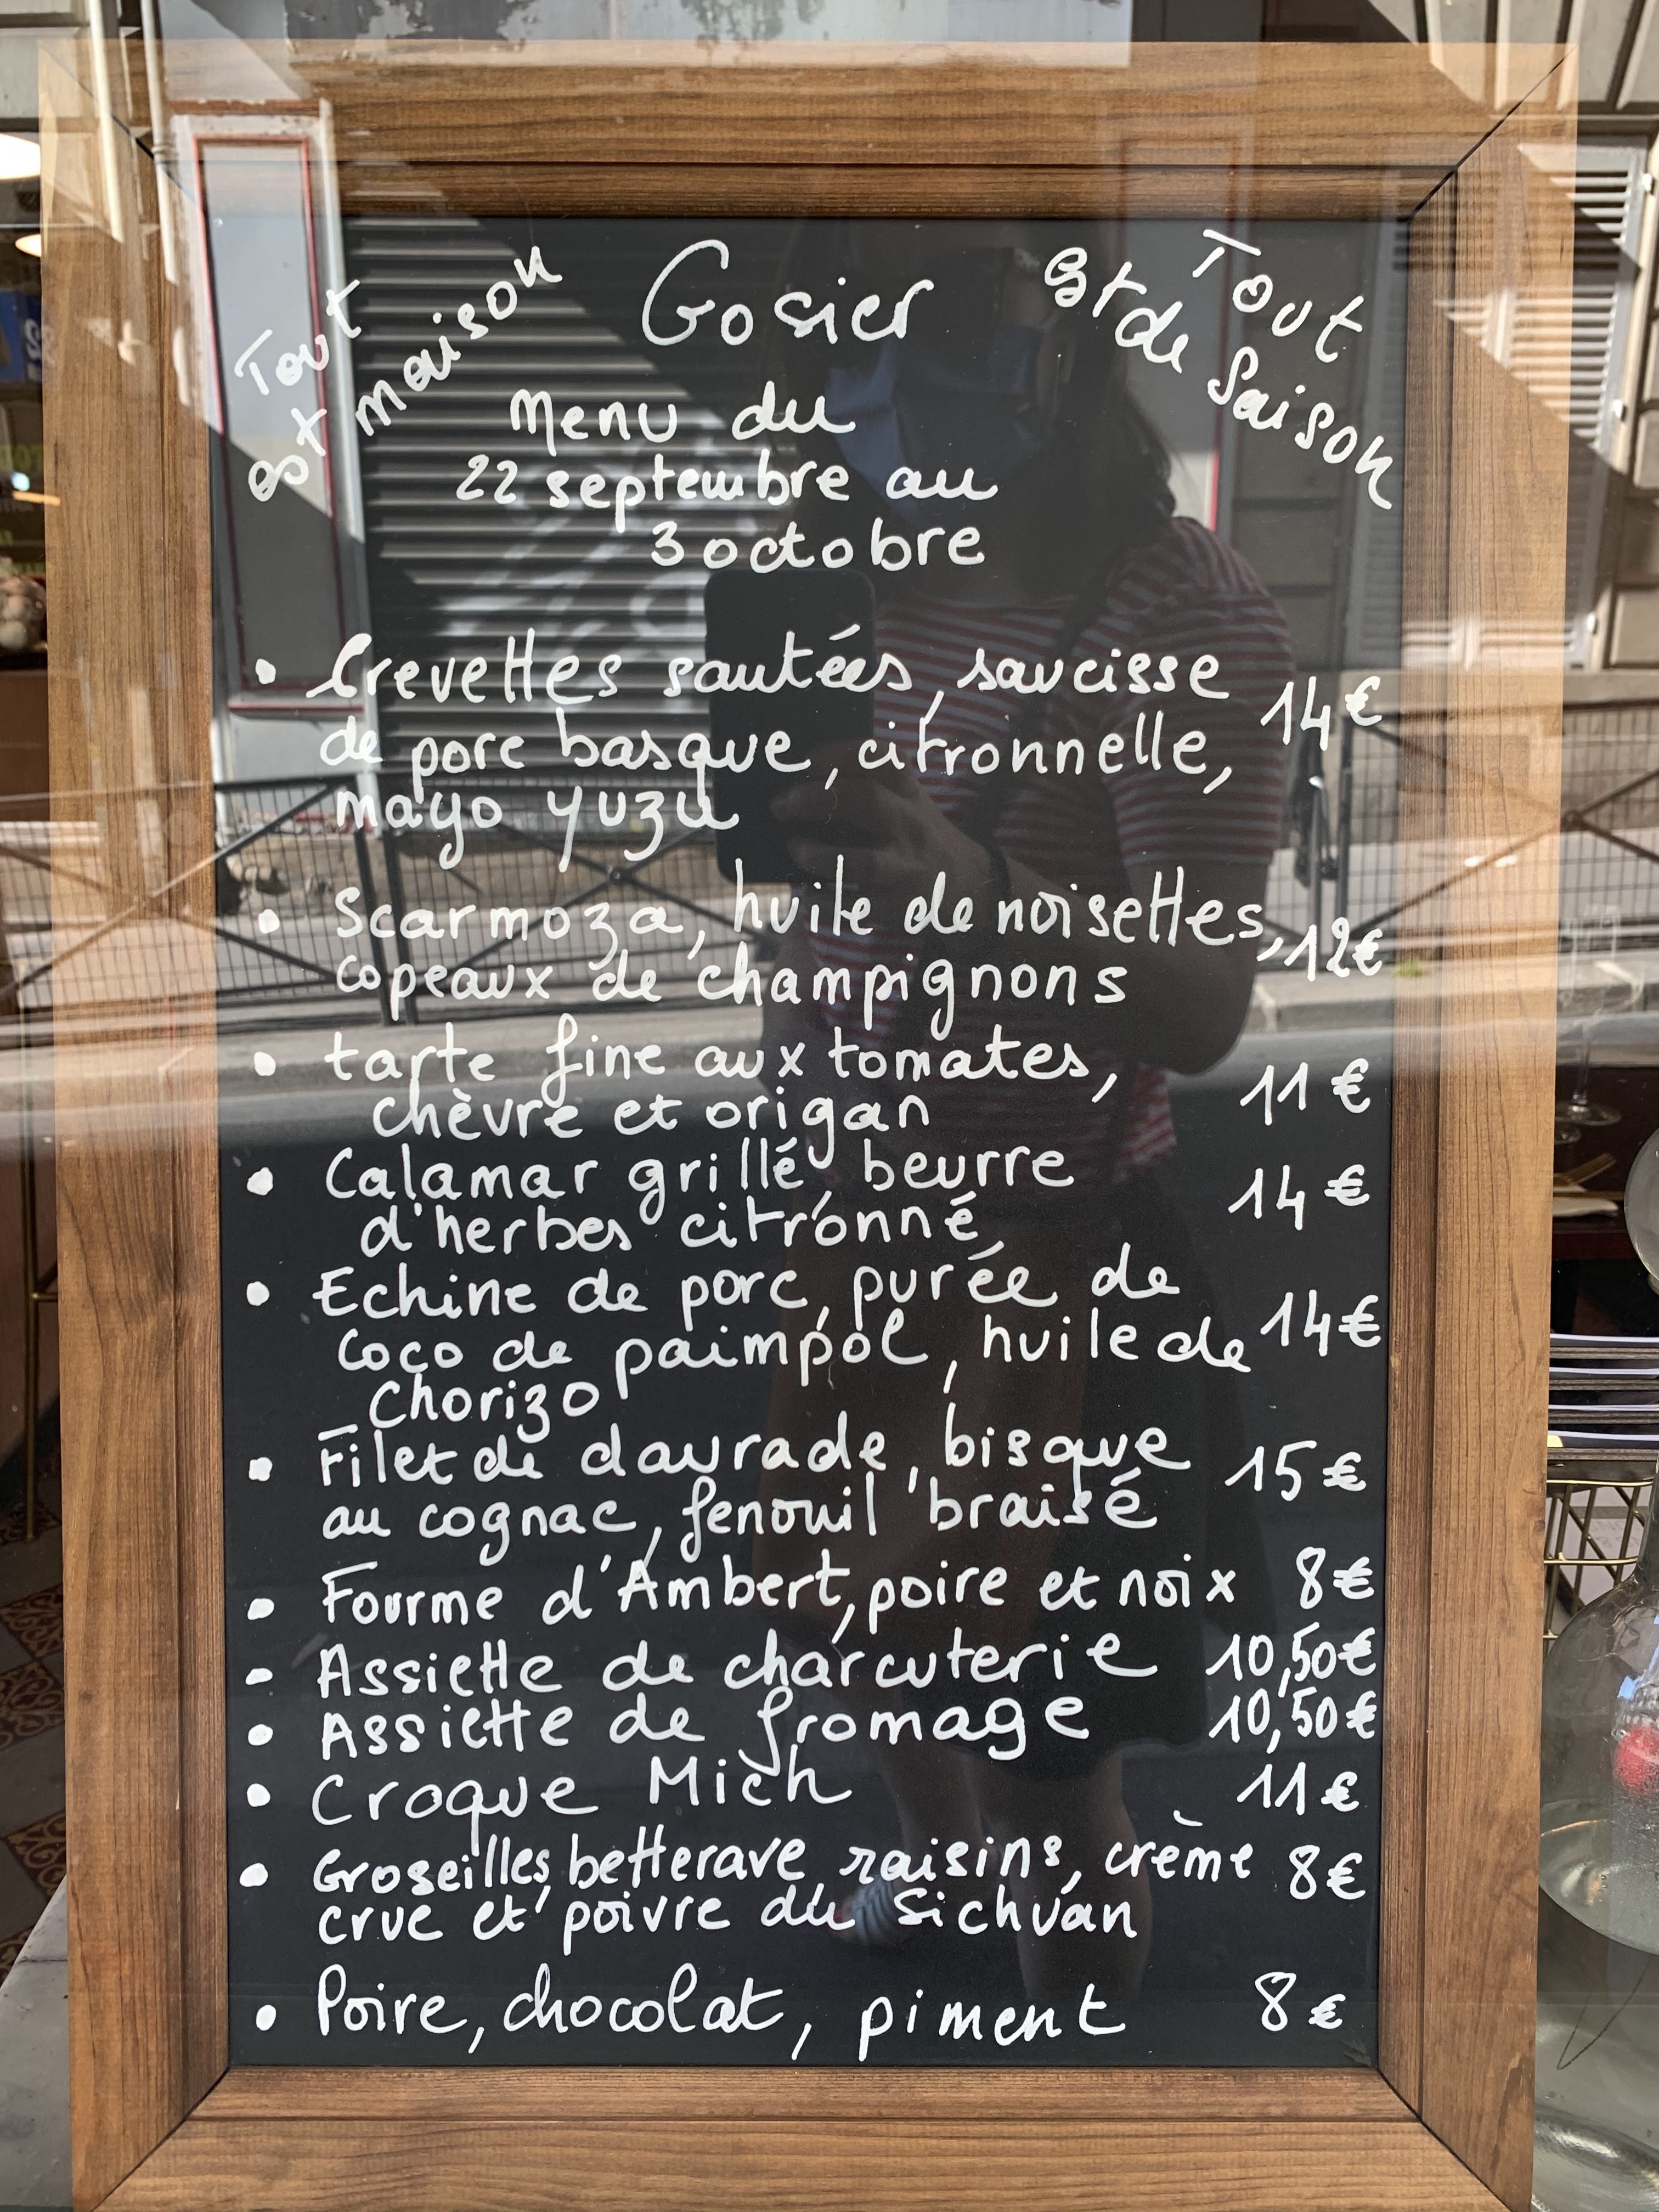 Tout
est maison
Gosier
Tout
est de saison
Menu du
22 septembre au
3 octobre
• Crevettes sautées, saucisse
de porc basque, citronnelle,
mayo yuzu
14€
• Scarmoza, huile de noisettes,
copeaux de champignons
12€
• tarte fine aux tomates,
chèvre et origan
11€
• Calamar grillé, beurre
d'herbes citronné
14€
• Echine de porc, purée de
coco de paimpol, huile de
Chorizo
14€
• Filet de daurade, bisque
au cognac, fenouil braisé
15€
• Fourme d'Ambert, poire et noix 8€
• Assiette de charcuterie 10,50€
• Assiette de fromage 10,50€
• Croque Mich 11€
• Groseilles, betterave, raisins, crème
crue et poivre du Sichuan
8€
• Poire, chocolat, piment 8€